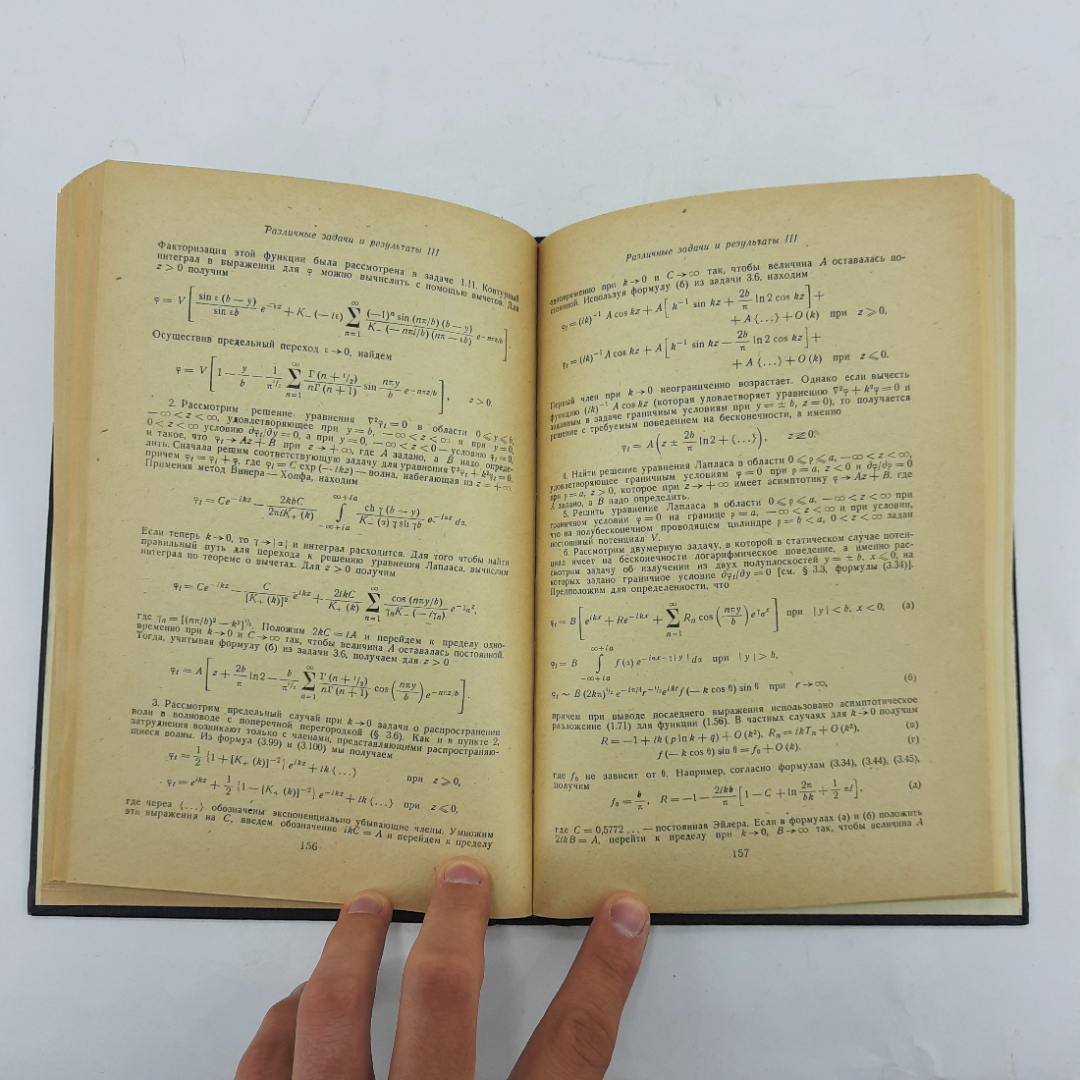 Различные задачи и результаты III
Факторизация этой функции была рассмотрена в задаче 1.11. Контурный
интеграл в выражении для φ можно вычислить с помощью вычетов. Для
z > 0 получим
φ = V [ sin ε (b — y) / sin εb e^{-εz} + K₋ (— iε) ∑_{n=1}^{∞} (—1)ⁿ sin (nπ/b) (b — y) / K₋ (— nπi/b) (nπ — εb) e^{-nπz/b} ].
Осуществив предельный переход ε → 0, найдем
φ = V [ 1 — y/b — 1/π^{1/2} ∑_{n=1}^{∞} Γ (n + 1/2) / nΓ (n + 1) sin nπy/b e^{-nπz/b} ], z > 0.
2. Рассмотрим решение уравнения ∇²φ_t = 0 в области 0 ⩽ y ⩽ b,
— ∞ < z < ∞, удовлетворяющее при y = b, — ∞ < z < ∞ и при y = 0,
0 < z < ∞ условию ∂φ_t/∂y = 0, а при y = 0, — ∞ < z < 0 — условию φ_t = 0,
и такое, что φ_t → Az + B при z → + ∞, где A задано, а B надо опреде-
лить. Сначала решим соответствующую задачу для уравнения ∇²φ_t + k²φ_t = 0,
причем φ_t = φ_i + φ, где φ_i = C exp (— ikz) — волна, набегающая из z = + ∞.
Применяя метод Винера — Хопфа, находим
φ_t = Ce^{-ikz} — 2kbC / 2πiK₊ (k) ∫_{-∞+ia}^{∞+ia} ch γ (b — y) / K₋ (α) γ sh γb e^{-iαz} dα.
Если теперь k → 0, то γ → |α| и интеграл расходится. Для того чтобы найти
правильный путь для перехода к решению уравнения Лапласа, вычислим
интеграл по теореме о вычетах. Для z > 0 получим
φ_t = Ce^{-ikz} — C / [K₊ (k)]² e^{ikz} + 2ikC / K₊ (k) ∑_{n=1}^{∞} cos (nπy/b) / γₙK₋ (— iγₙ) e^{-γₙz},
где γₙ = [(nπ/b)² — k²]^{1/2}. Положим 2kC = iA и перейдем к пределу одно-
временно при k → 0 и C → ∞ так, чтобы величина A оставалась постоянной.
Тогда, учитывая формулу (б) из задачи 3.6, получаем для z > 0
φ_t = A [ z + 2b/π ln 2 — b/π^{1/2} ∑_{n=1}^{∞} Γ (n + 1/2) / nΓ (n + 1) cos (nπy/b) e^{-nπz/b} ].
3. Рассмотрим предельный случай при k → 0 задачи о распространении
волн в волноводе с поперечной перегородкой (§ 3.6). Как и в пункте 2,
затруднения возникают только с членами, представляющими распространяю-
щиеся волны. Из формул (3.99) и (3.100) мы получаем
φ_t = 1/2 {1 + [K₊ (k)]⁻²} e^{ikz} + ik {...} при z ⩾ 0,
φ_t = e^{ikz} + 1/2 {1 — [K₊ (k)]⁻²} e^{-ikz} + ik {...} при z ⩽ 0,
где через {...} обозначены экспоненциально убывающие члены. Умножим
эти выражения на C, введем обозначение ikC = A и перейдем к пределу
156
Различные задачи и результаты III
одновременно при k → 0 и C → ∞ так, чтобы величина A оставалась по-
стоянной. Используя формулу (б) из задачи 3.6, находим
φ_t = (ik)⁻¹ A cos kz + A [ k⁻¹ sin kz + 2b/π ln 2 cos kz ] +
+ A {...} + O (k) при z ⩾ 0,
φ_t = (ik)⁻¹ A cos kz + A [ k⁻¹ sin kz — 2b/π ln 2 cos kz ] +
+ A {...} + O (k) при z ⩽ 0.
Первый член при k → 0 неограниченно возрастает. Однако если вычесть
функцию (ik)⁻¹ A cos kz (которая удовлетворяет уравнению ∇²φ + k²φ = 0 и
заданным в задаче граничным условиям при y = ± b, z = 0), то получается
решение с требуемым поведением на бесконечности, а именно
φ_t = A ( z ± 2b/π ln 2 + {...} ), z ≷ 0.
4. Найти решение уравнения Лапласа в области 0 ⩽ ρ ⩽ a, — ∞ < z < ∞,
удовлетворяющее граничным условиям φ = 0 при ρ = a, z < 0 и ∂φ/∂ρ = 0
при ρ = a, z > 0, которое при z → + ∞ имеет асимптотику φ → Az + B, где
A задано, а B надо определить.
5. Решить уравнение Лапласа в области 0 ⩽ ρ ⩽ a, — ∞ < z < ∞ при
граничном условии φ = 0 на границе ρ = a, — ∞ < z < ∞ и при условии,
что на полубесконечном проводящем цилиндре ρ = b < a, 0 < z < ∞ задан
постоянный потенциал V.
6. Рассмотрим двумерную задачу, в которой в статическом случае потен-
циал имеет на бесконечности логарифмическое поведение, а именно рас-
смотрим задачу об излучении из двух полуплоскостей y = ± b, x ⩽ 0, на
которых задано граничное условие ∂φ_t/∂y = 0 [см. § 3.3, формулы (3.34)].
Предположим для определенности, что
φ_t = B [ e^{ikx} + Re^{-ikx} + ∑_{n=1}^{∞} Rₙ cos (nπy/b) e^{γₙx} ] при |y| < b, x < 0, (а)
φ_t = B ∫_{-∞+ia}^{∞+ia} f (α) e^{-iαx-γ|y|} dα при |y| > b,
φ_t ~ B (2kπ)^{1/2} e^{-iπ/4} r^{-1/2} e^{ikr} f (— k cos θ) sin θ при r → ∞, (б)
причем при выводе последнего выражения использовано асимптотическое
разложение (1.71) для функции (1.56). В частных случаях для k → 0 получим
R = —1 + ik (p ln k + q) + O (k²), Rₙ = ikTₙ + O (k²), (в)
f (— k cos θ) sin θ = f₀ + O (k). (г)
где f₀ не зависит от θ. Например, согласно формулам (3.34), (3.44), (3.45),
получим
f₀ = b/π, R = —1 — 2ikb/π [ 1 — C + ln 2π/bk + 1/2 πi ], (д)
где C = 0,5772 ... — постоянная Эйлера. Если в формулах (а) и (б) положить
2ikB = A, перейти к пределу при k → 0, B → ∞ так, чтобы величина A
157